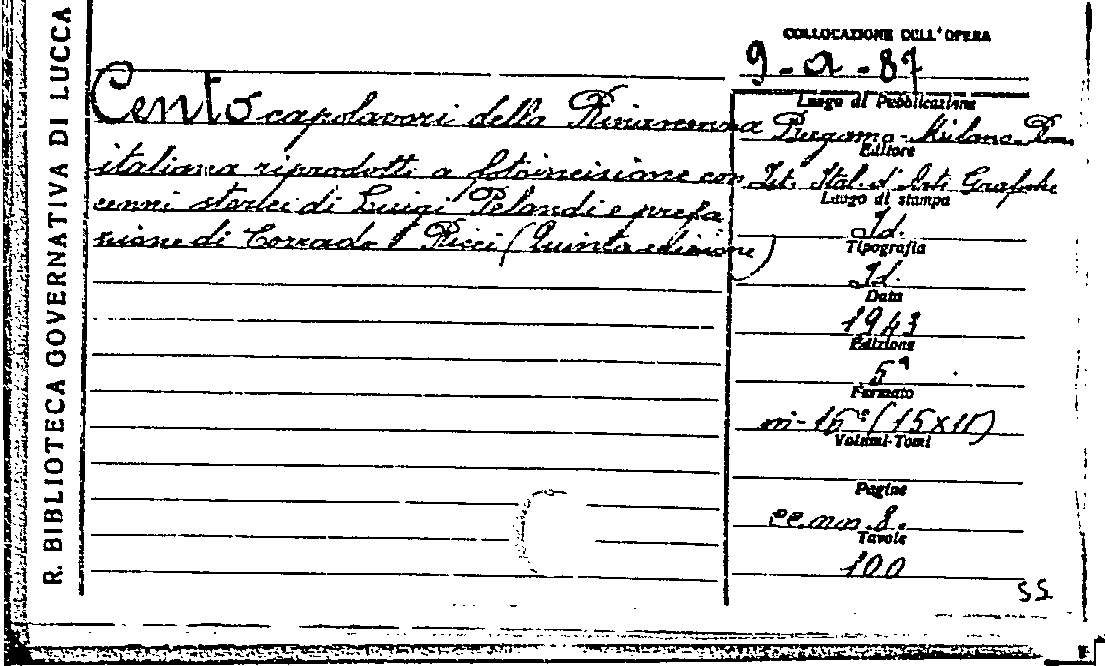 R. BIBLIOTECA GOVERNATIVA DI LUCCA
COLLOCAZIONE DELL'OPERA
9-a-87
Cento capolavori della Rinascenza
italiana riprodotti a fotoincisione con
cenni storici di Luigi Pelandi e prefa
zione di Corrado Ricci (Quinta edizione)
Luogo di Pubblicazione
Bergamo-Milano-Rom.
Editore
Ist. Ital. d'Arti Grafiche
Luogo di stampa
Id.
Tipografia
Id.
Data
1943
Edizione
5ª
Formato
in-16° (15x11)
Volumi-Tomi
Pagine
cc. nn. 8.
Tavole
100
SS